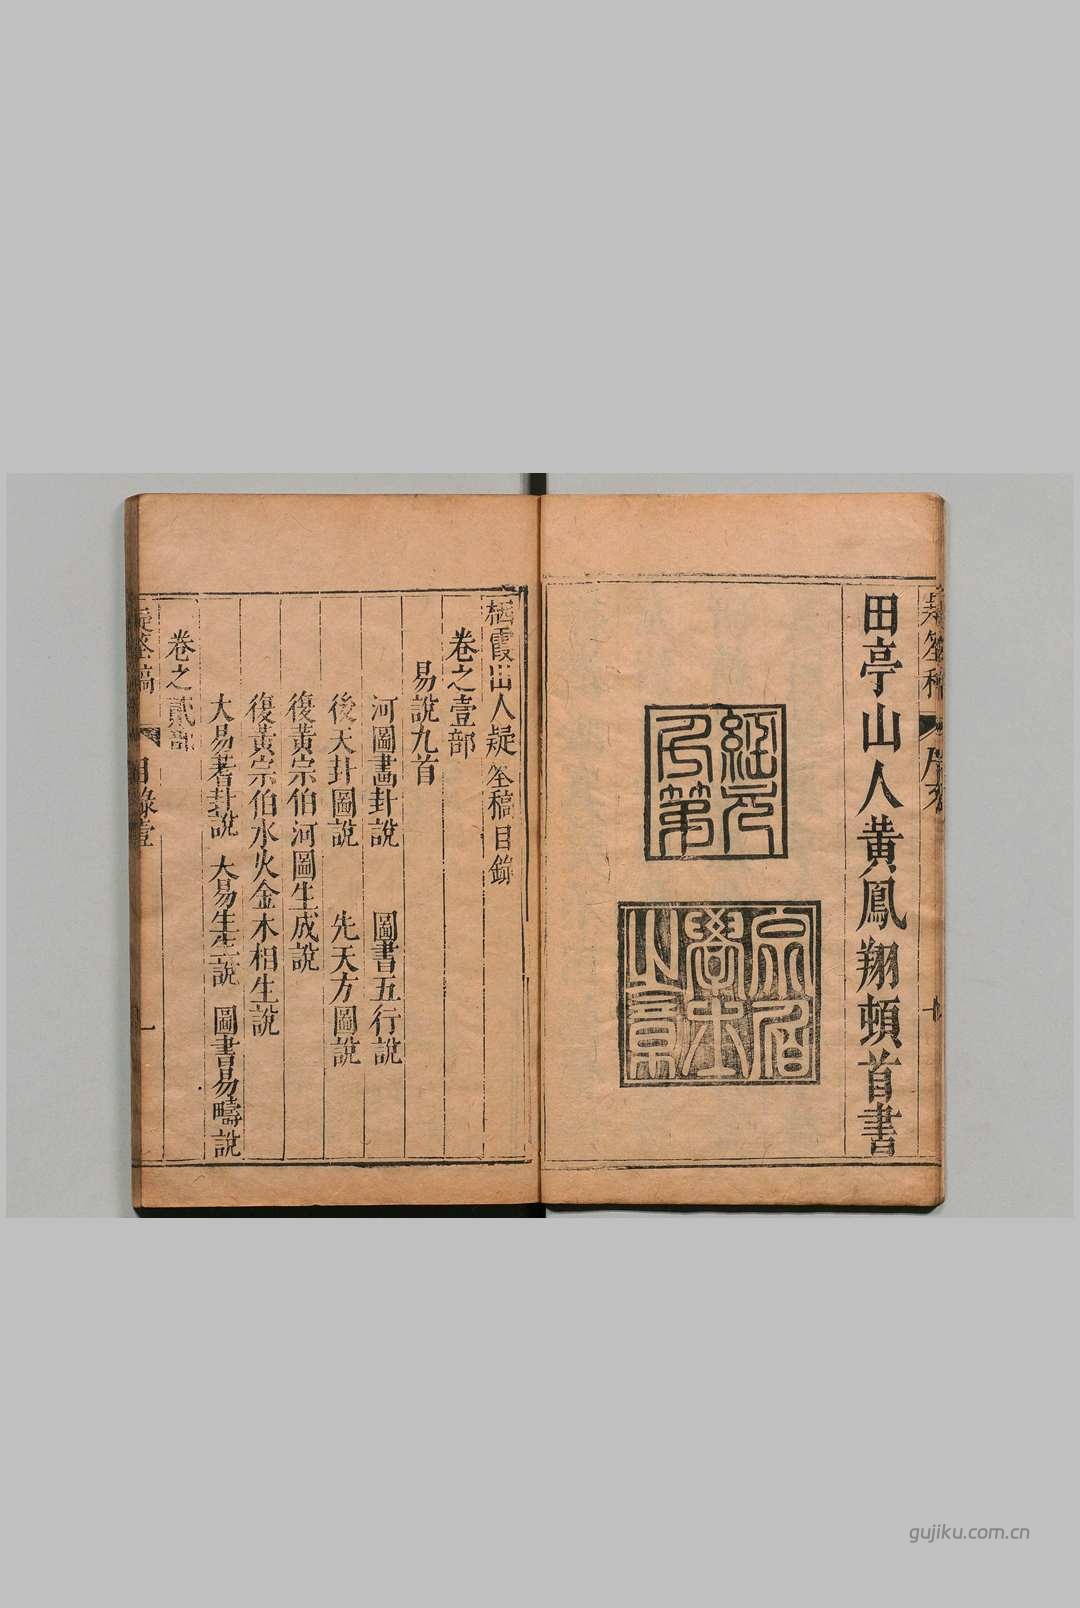 田亭山人黃鳳翔頓首書
栖霞山人疑筌稿目錄
卷之壹部
易說九首
河圖畵卦說　圖書五行說
後天卦圖說　先天方圖說
復黃宗伯河圖生成說
復黃宗伯水火金木相生說
大易蓍卦說　大易生生說　圖書易疇說
卷之貳部
疑筌稿　目錄壹　一
gujiku.com.cn